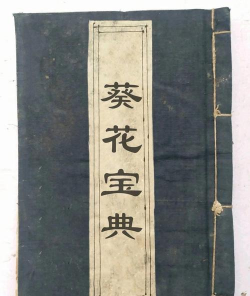 葵花宝典